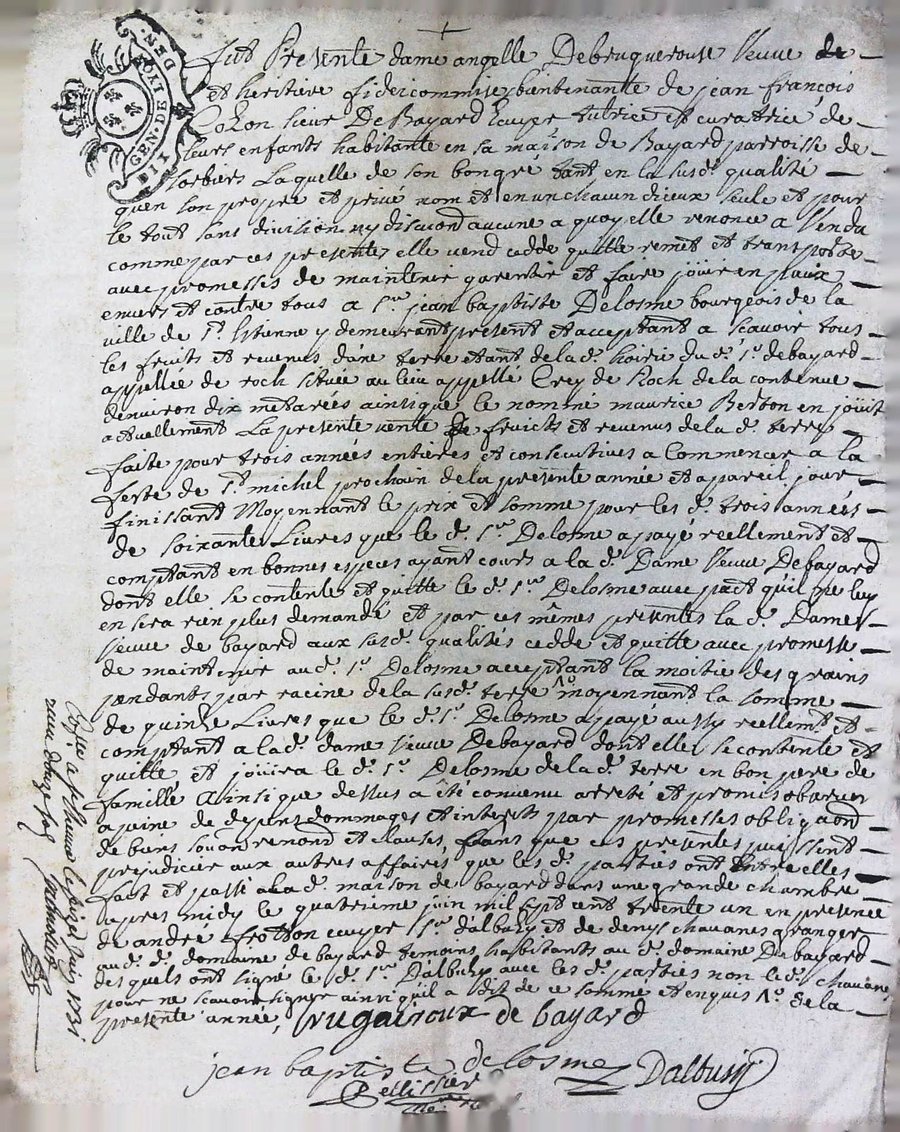 GEN. DE LYON
Fut Presente dame angelle Debruguerouse Veuve de
et heritiere fideicommise bientenante de jean françois
Colon sieur De Bayard Ecuyer tutrice et curatrice de
leurs enfants habitante en sa maison de Bayard parroisse de
sorbiers Laquelle de son bongré tant en la susd. qualité
quen son propre et privé nom et en un chacun dieux seule et pour
le tout sans division ny discution aucune a quoy elle renonce a Vendu
comme par ces presentes elle vend cedde quitte remet et transporte
avec promesses de maintenir garentir et faire jouir en paix
envers et contre tous a Sr. jean baptiste Delosme bourgeois de la
ville de St. Etienne y demeurant present et acceptant a scavoir tous
les fruits et revenus dune terre etant de la d. hoirie du d. Sr. debayard
appellée de roch située au lieu appellé Crey de Roch de la contenue
denviron dix meterées ainsique le nommé maurice Berton en jouit
actuellement La presente vente de fruicts et revenus de la d. terre
faite pour trois années entieres et consecutives a Commencer a la
feste de St. michel prochain de la presente année et a pareil jour
finissant Moyennant le prix et somme pour les d. trois années
de soixante Livres que le d. Sr. Delosme a payé reellement et
comptant en bonnes especes ayant cours a la d. Dame Veuve Debayard
dont elle se contente et quitte le d. Sr. Delosme avec pact quil ne luy
en sera rien plus demandé et par ces mêmes presentes la d. Dame
veuve de bayard aux susd. qualités cedde et quitte avec promesse
de maintenir aud. Sr. Delosme acceptant la moitie des grains
pendants par racine de la susd. terre moyennant la somme
de quinze Livres que le d. Sr. Delosme a payé aussy reellemt. et
comptant a la d. dame Veuve Debayard dont elle se contente et
quitte et jouira le d. Sr. Delosme de la d. terre en bon pere de
famille Ainsi que dessus a été convenu arreté et promis observer
a peine de depens dommages et interets par promesses obligaõn
de biens renond et clauses, sans que ces presentes puissent
prejudicier aux autres affaires que les d. parties ont entre elles
fait et passé a la d. maison de bayard dans une grande chambre
apres midy le quatrieme juin mil sept cent trente un en presence
de andré frotton ecuyer Sr. dalbuzy et de denys chavanes granger
au d. domaine de bayard temoins habitants au d. domaine De bayard
desquels ont signé le d. Sr. Dalbuzy avec les d. parties non le d. chavane
pour ne scavoir signer ainsi quil a dit de ce sommé et enquis de la
presente année,
de bayard
jean baptiste delosme
Dalbusy
Pellissier
Con̄e. a St. Etienne le juin 1731
receu douze sols